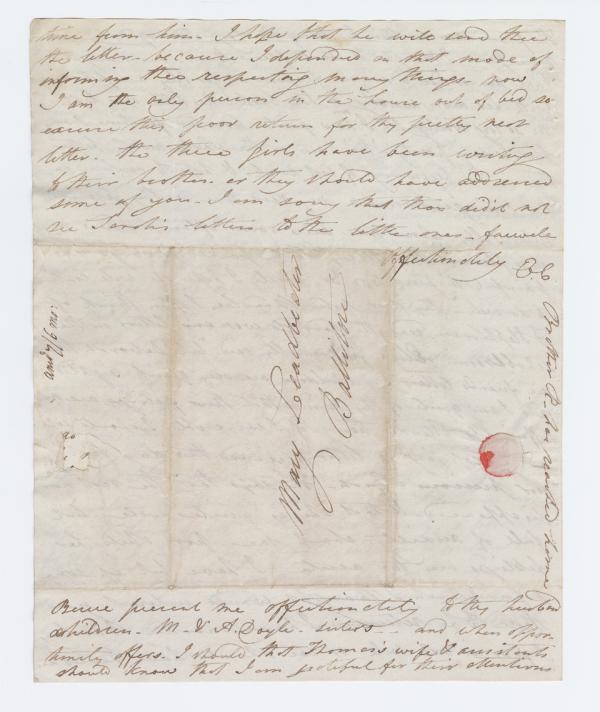 time from him - I hope that he will send thee
the letter - because I depended on that mode of
informing thee respecting many things - now
I am the only person in the house out of bed so
excuse this poor return for thy pretty neat
letter. the three Girls have been writing
to their brother. as they should have addressed
some of you - I am sorry that thou didst not
see Sarah's letters to the little ones - farewell
affectionately E.C
Brother R. has reached home
Mary Leadbeater
Ballitore
ansd 7/6 mo:
present me affectionately to thy husband
& children - M. & A. Doyle - sisters - and when oppor
tunity offers. I should that Thomas's wife & assistants
should know that I am grateful for their attentions